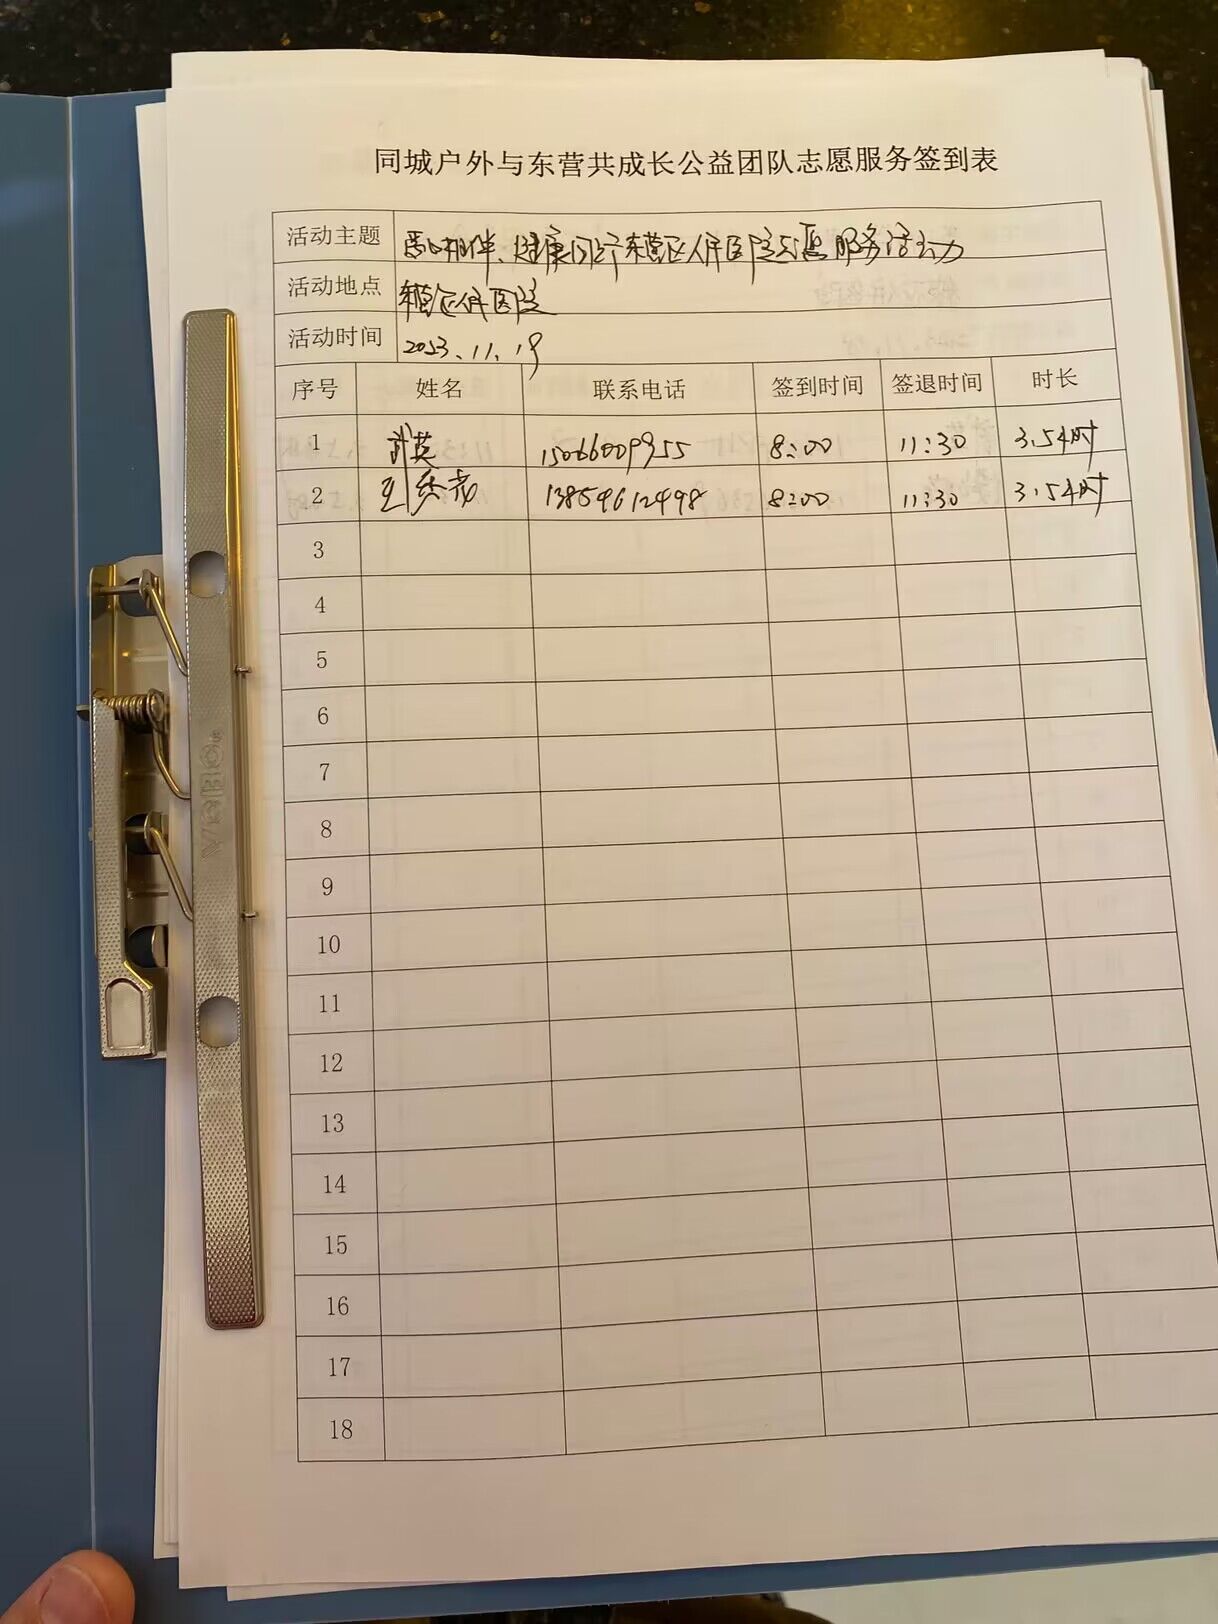 同城户外与东营共成长公益团队志愿服务签到表
活动主题 爱心相伴、健康同行东营区人民医院志愿服务活动
活动地点 东营区人民医院
活动时间 2023.11.19
序号 姓名 联系电话 签到时间 签退时间 时长
1 英 15066009955 8:00 11:30 3.5小时
2 王秀 13854612498 8:00 11:30 3.5小时
3
4
5
6
7
8
9
10
11
12
13
14
15
16
17
18